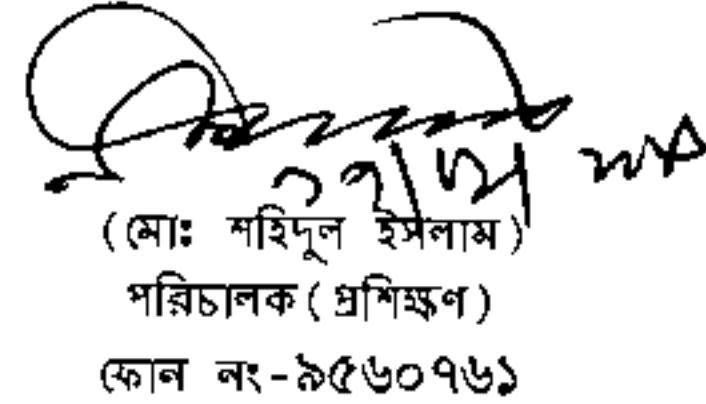 (মোঃ শহিদুল ইসলাম)
পরিচালক (প্রশিক্ষণ)
ফোন নং-৯৫৬০৭৬১